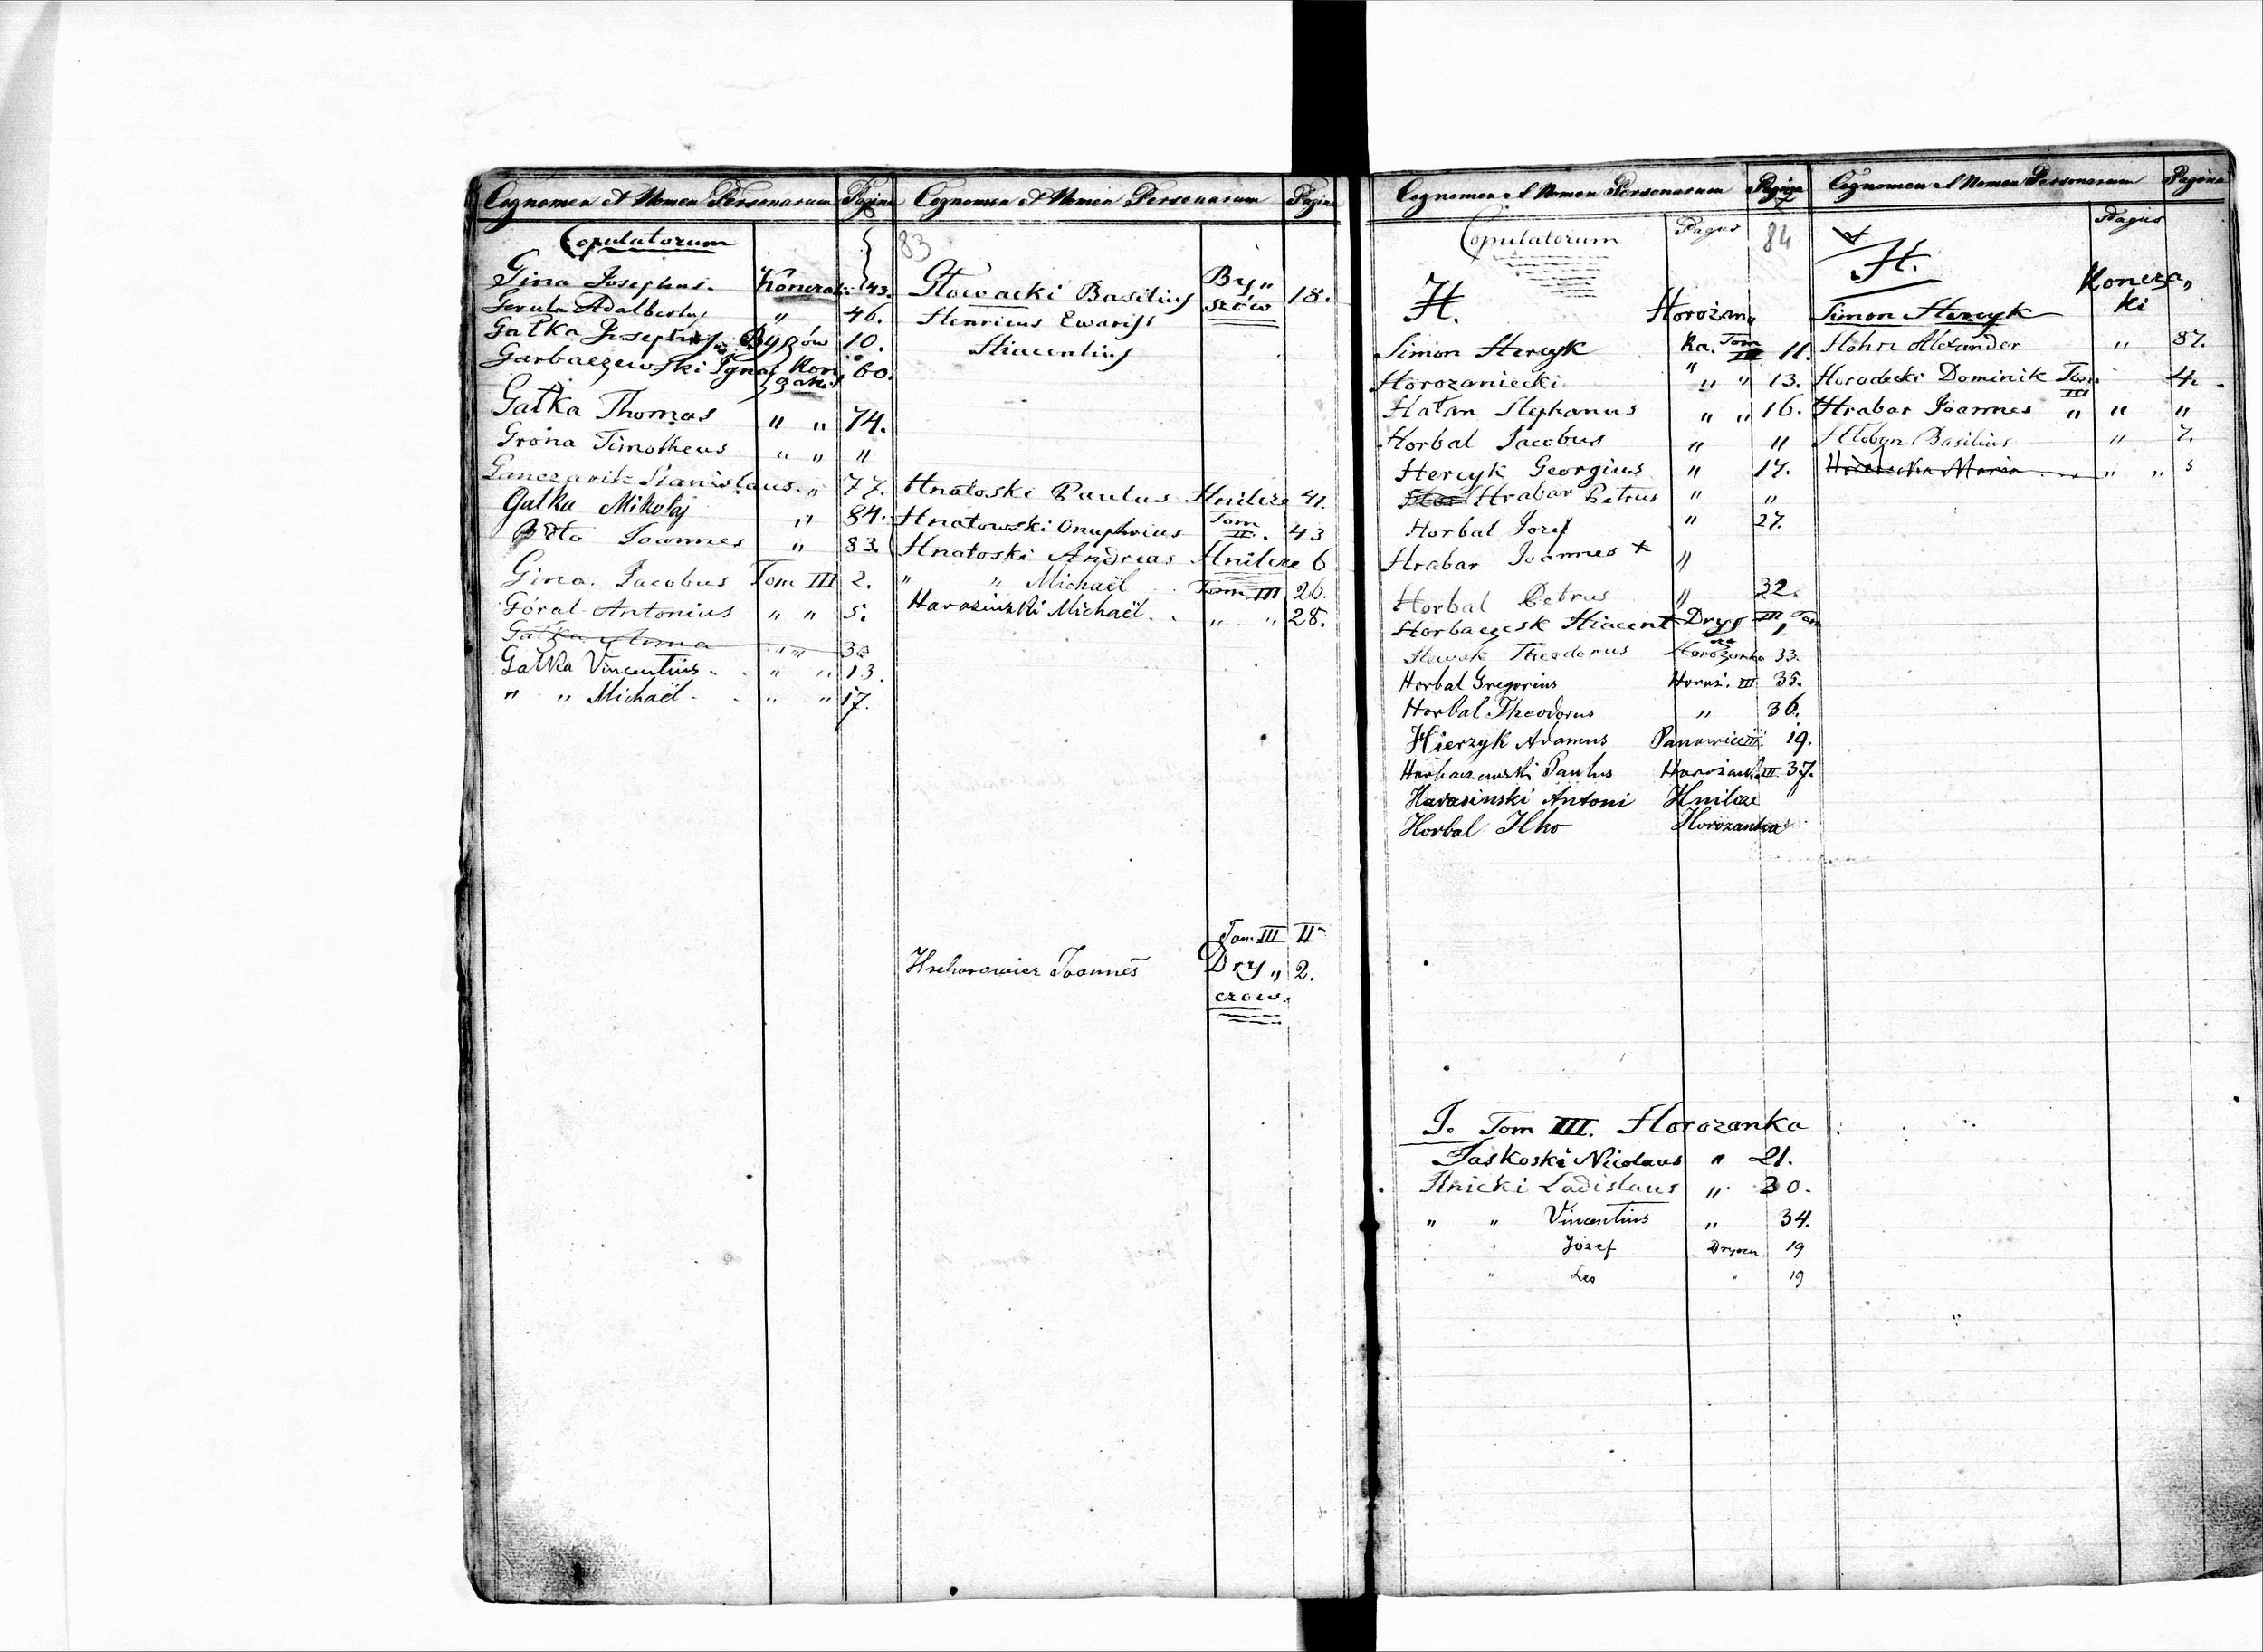 Cognomen et Nomen Personarum Pagina
Copulatorum
Gina Josephus. Konczak: 43.
Gerula Adalbertus " 46.
Gałka Josephus Byszów 10.
Garbaczewski Ignaś Kon„ 60.
czaki
Gałka Thomas " " 74.
Grona Timotheus " " "
Ganczarik Stanislaus. " 77.
Gałka Mikołaj " 84.
Dtto Joannes " 83.
Gina. Jacobus Tom III 2.
Góral Antonius " " 5.
Gałka Anna " "
Gałka Vincentius. " " 13.
" " Michaël. " " 17.
Cognomen et Nomen Personarum Pagina
83
Głowacki Basilius By„ 18.
szów
Henricus Ewarist
Hiacentius
Hnatoski Paulus Hnilcze 41.
Hnatowski Onuphrius Tom II. 43
Hnatoski Andreas Hnilcze 6
" " Michaël Tom III 26.
Harasinski Michaël. " " 28.
Tom III II
Hrehorowicz Joannes Dry„ 2.
czow.
Cognomen et Nomen Personarum Pagina
Copulatorum Pagus 84
H. Horożan„
Simon Hercyk ka. Tom 11.
Horozaniecki " " 13.
Hałan Stephanus " " 16.
Horbal Jacobus " "
Hercyk Georgius " 17.
Hrabar Petrus " "
Horbal Jozef " 27.
Hrabar Joannes + "
Horbal Petrus " 32.
Horbaczesk Hiacent Dry III Tom
Theodorus Horożanka 33.
Horbal Gregorius Horoż. III 35.
Horbal Theodorus " 36.
Hierzyk Adamus Panowice III. 19.
Horbaczewski Paulus Horożanka III 37.
Harasinski Antoni Hnilcze
Horbal Ilko Horozanka
J. Tom III. Horozanka
Jaskoski Nicolaus " 21.
Ilnicki Ladislaus " 30.
" " Vincentius " 34.
" Józef Dryszcz. 19
" Leo " 19
Cognomen et Nomen Personarum Pagina
Pagus
H. Koncza„
Simon Hercyk ki
Hohn Alexander " 87.
Horodecki Dominik Tom III 4.
Hrabar Joannes " " "
Hłobyn Basilius " 7.
Maria " "